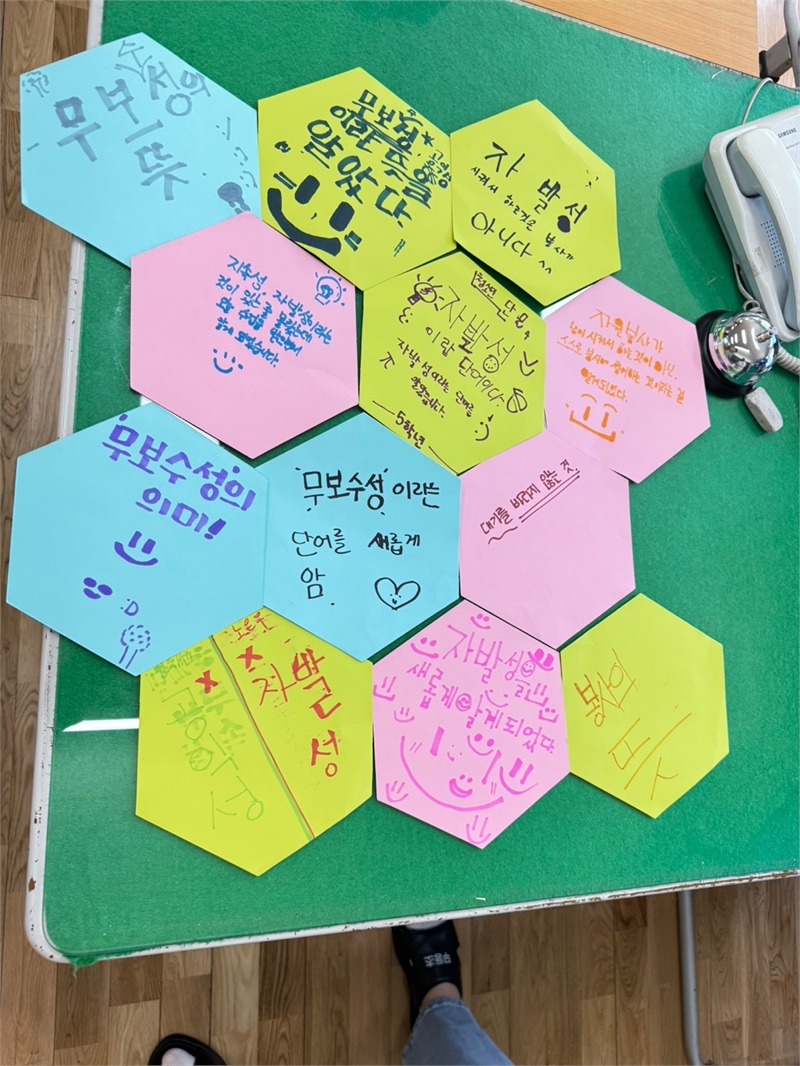 무보수성의
뜻
무보수성,
알았다.
자발성
시켜서 하는것은 봉사가
아니다 ^^
지속성, 자발성이라는
것이 있는
알게 되었습니다.
자발성
이란 단어이다.
자발성이라는 단어를
5학년
자율봉사가
남이 시켜서 하는것이 아닌,
스스로 봉사에 참여하는 것이라는 걸
알게되었다.
무보수성의
의미!
:D
무보수성이라는
단어를 새롭게
암.
대가를 바라지 않는 것.
자발성
공익성
자발성을
새롭게 알게 되었다.
봉사의
뜻
SAMSUNG
무동초